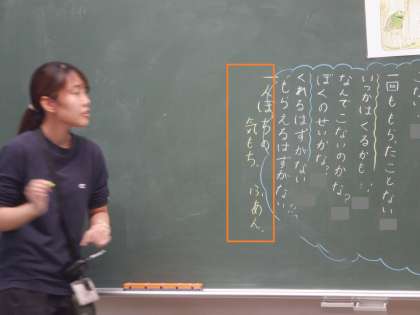 な。
一回ももらったことない
いつかはくるかも…。
なんでこないのかな？
ぼくのせいかな？
くれるはずがない
もらえるはずがない…。
一人ぼっちの
気もち。ふあん。